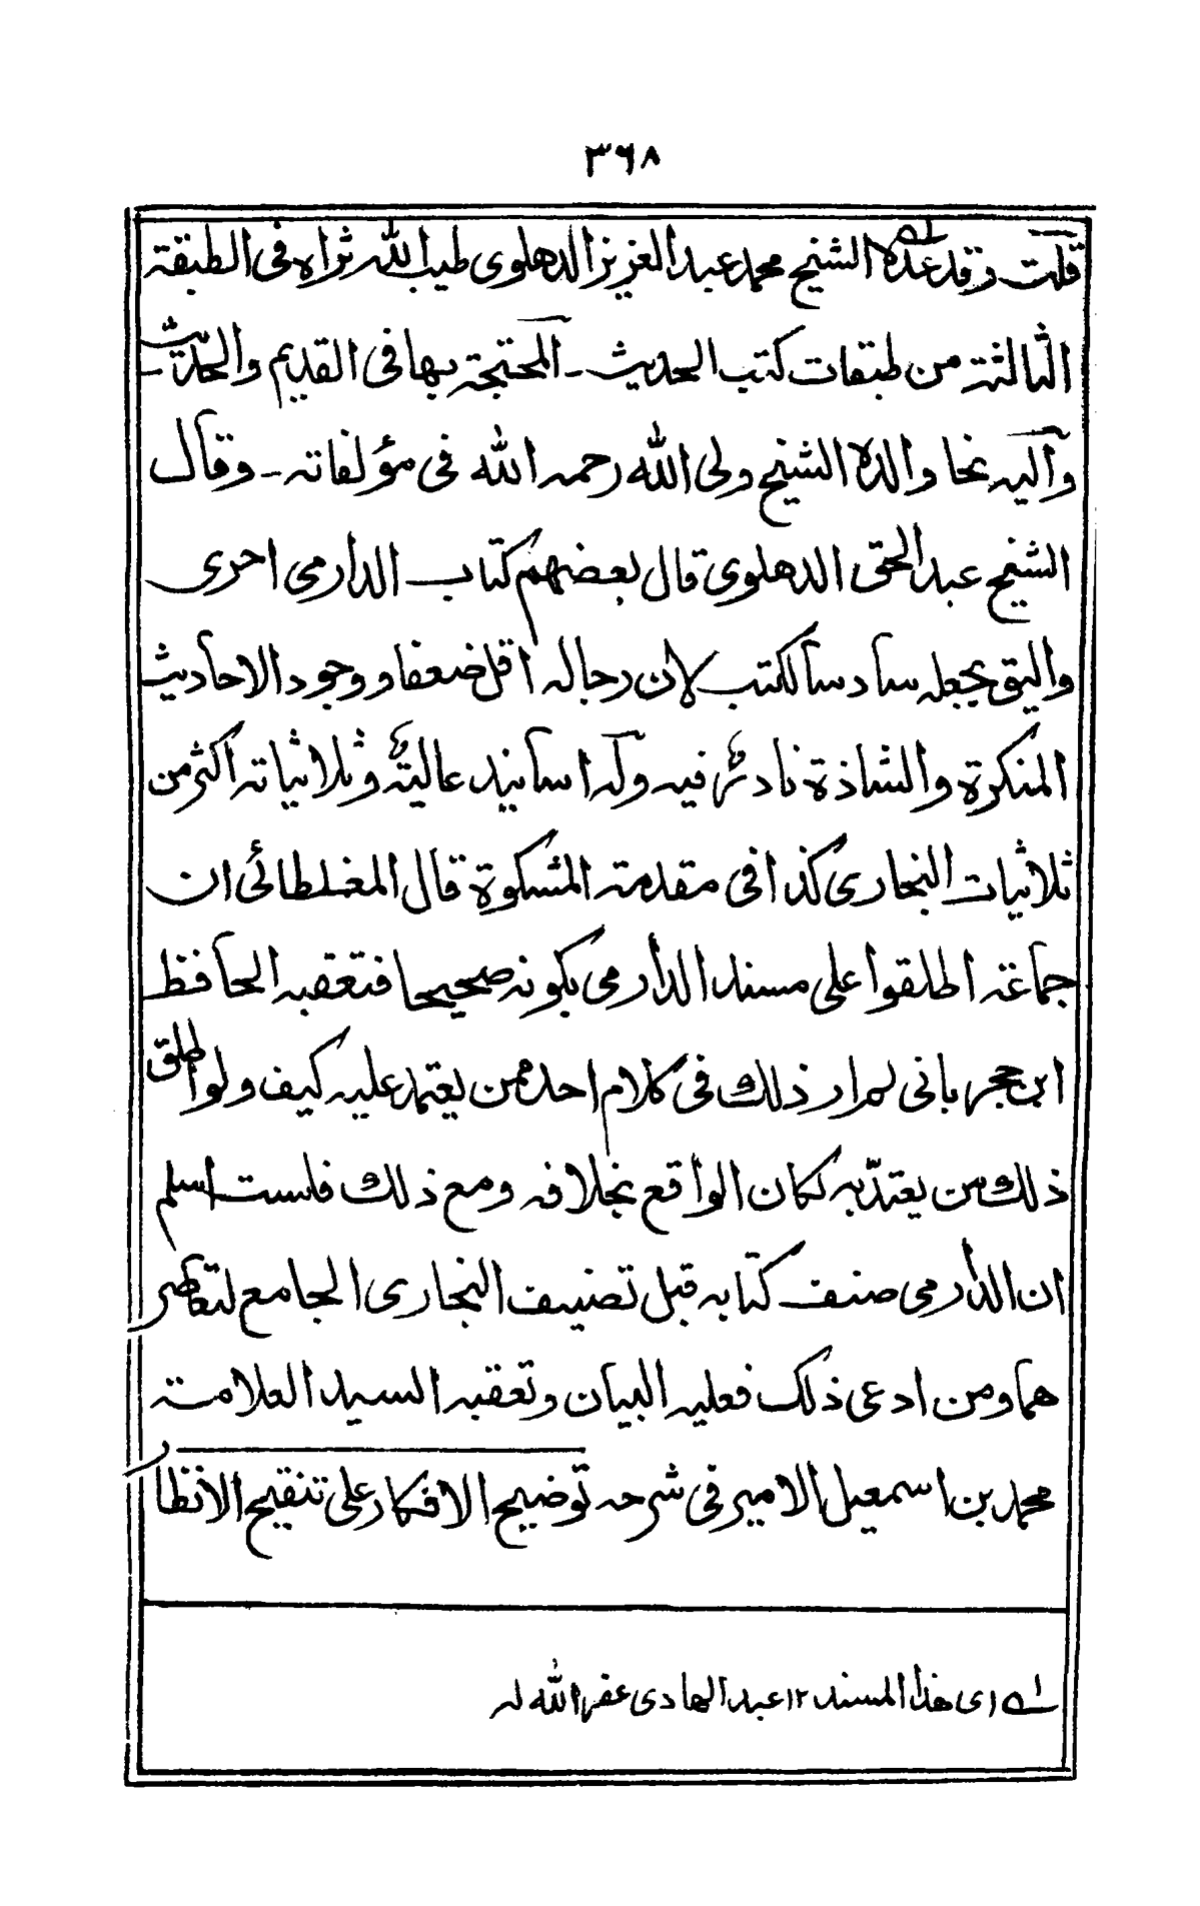 ٣٦٨
قلت وقد عده الشيخ محمد عبد العزيز الدهلوى طيب الله ثراه فى الطبقة
الثالثة من طبقات كتب الحديث ـ المحتجة بها فى القديم والحديث
واليه نحا والده الشيخ ولى الله رحمه الله فى مؤلفاته ـ وقال
الشيخ عبد الحق الدهلوى قال بعضهم كتاب الدارمى احرى
واليق بجعله سادسا لكتب لان رجاله اقل ضعفا ووجود الاحاديث
المنكرة والشاذة نادر فيه وله اسانيد عالية وثلاثياته اكثر من
ثلاثيات البخارى كذا فى مقدمة المشكوة قال المغلطائى ان
جماعة اطلقوا على مسند الدارمى بكونه صحيحا فتعقبه الحافظ
ابن حجر بانى لم ار ذلك فى كلام احد ممن يعتمد عليه كيف ولو اطلق
ذلك من يعتدّ به لكان الواقع بخلافه ومع ذلك فلست اسلم
ان الدارمى صنف كتابه قبل تصنيف البخارى الجامع لتعاصر
هما ومن ادعى ذلك فعليه البيان وتعقبه السيد العلامة
محمد بن اسمعيل الامير فى شرحه توضيح الافكار على تنقيح الانظار
ا؎ اى هذا المسند ١٢ عبد الهادى غفر الله له